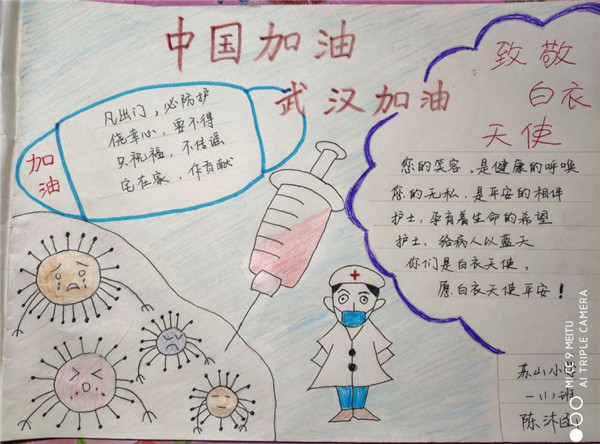 中国加油
武汉加油
加油
凡出门，必防护
侥幸心，要不得
只祝福，不传谣
宅在家，作贡献
致敬
白衣
天使
您的笑容，是健康的呼唤
您的无私，是平安的相伴
护士，孕育着生命的希望
护士，给病人以蓝天
你们是白衣天使，
愿白衣天使平安！
苏山小
一(1)班
陈沐
MI CC 9 MEITU
AI TRIPLE CAMERA